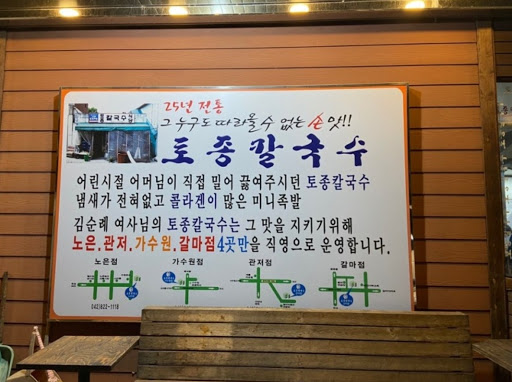 25년 전통
그 누구도 따라올 수 없는 손 맛!!
토종칼국수
어린시절 어머님이 직접 밀어 끓여주시던 토종칼국수
냄새가 전혀없고 콜라겐이 많은 미니족발
김순례 여사님의 토종칼국수는 그 맛을 지키기위해
노은.관저.가수원.갈마점4곳만을 직영으로 운영합니다.
노은점 가수원점 관저점 갈마점
칼국수